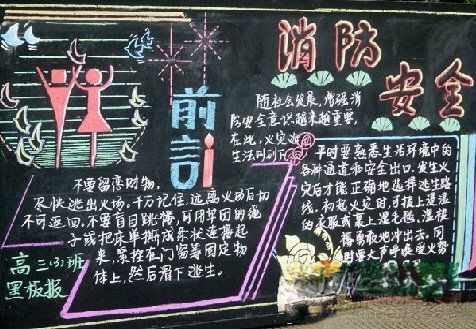 消防安全
前言
随社会发展，增强消
防安全意识越来越重要。
在此，火灾逃
生活叫到
不要留恋财物。
尽快逃出火场，千万记住，逃离火场后切
不可返回。不要盲目跳楼，可用牢固的绳
子或把床单撕成条状连接起
来，紧拴在门窗等固定物
体上，然后滑下逃生。
平时要熟悉生活环境中的
各种通道和安全出口，发生火
灾后才能正确地选择逃生路
线。初起火灾时，可披上浸湿
的衣服或裹上湿毛毯、湿棉
褥勇敢地冲出去，同
时要大声呼唤或火势
高三(3)班
黑板报